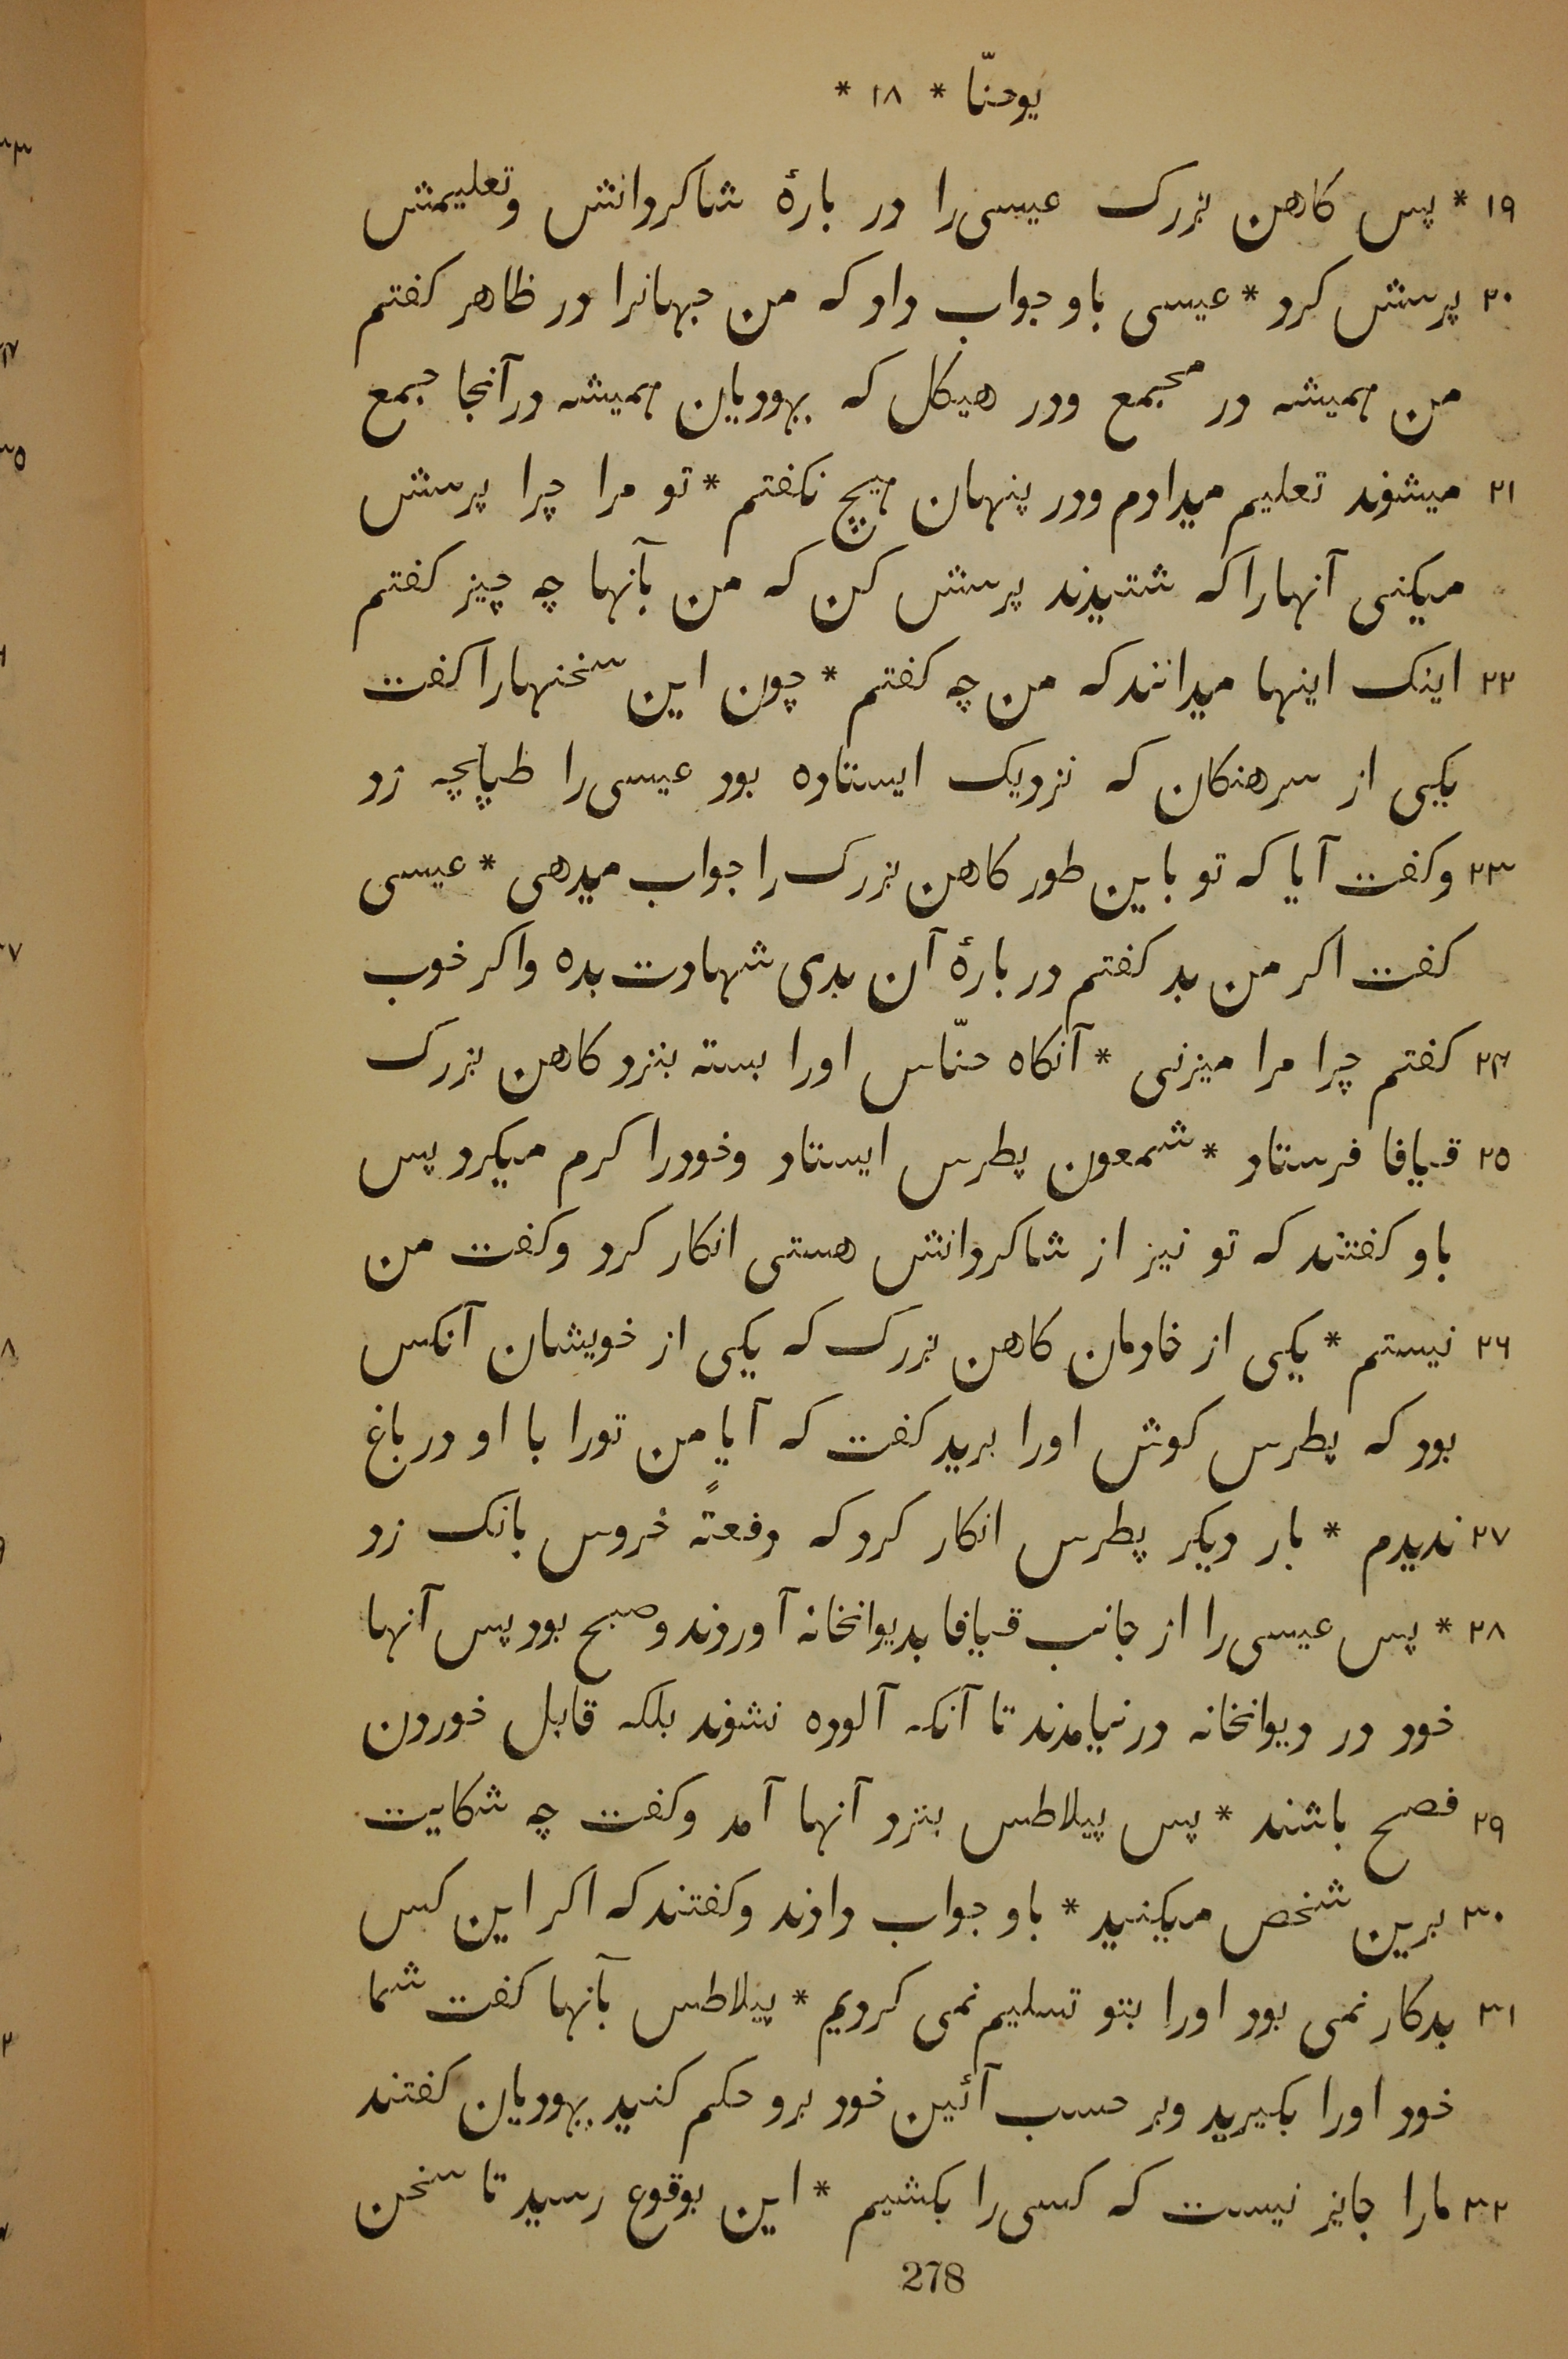 یوحنّا * ۱۸ *
۱۹ * پس کاهن بزرک عیسی را در بارهٔ شاکردانش وتعلیمش
۲۰ پرسش کرد * عیسی باو جواب داد که من جهانرا در ظاهر کفتم
من همیشه در مجمع ودر هیکل که یهودیان همیشه در آنجا جمع
۲۱ میشوند تعلیم میدادم ودر پنهان هیچ نکفتم * تو مرا چرا پرسش
میکنی آنهارا که شنیدند پرسش کن که من بآنها چه چیز کفتم
۲۲ اینک اینها میدانند که من چه کفتم * چون این سخنهارا کفت
یکی از سرهنکان که نزدیک ایستاده بود عیسی را طپانچه زد
۲۳ وکفت آیا که تو باین طور کاهن بزرک را جواب میدهی * عیسی
کفت اکر من بد کفتم در بارهٔ آن بدی شهادت بده واکر خوب
۲۴ کفتم چرا مرا میزنی * آنکاه حنّاس اورا بسته بنزد کاهن بزرک
۲۵ قیافا فرستاد * شمعون پطرس ایستاد وخودرا کرم میکرد پس
باو کفتند که تو نیز از شاکردانش هستی انکار کرد وکفت من
۲۶ نیستم * یکی از خادمان کاهن بزرک که یکی از خویشان آنکس
بود که پطرس کوش اورا برید کفت که آیا من تورا با او در باغ
۲۷ ندیدم * بار دیکر پطرس انکار کرد که دفعتهً خروس بانک زد
۲۸ * پس عیسی را از جانب قیافا بدیوانخانه آوردند وصبح بود پس آنها
خود در دیوانخانه در نیامدند تا آنکه آلوده نشوند بلکه قابل خوردن
۲۹ فصح باشند * پس پیلاطس بنزد آنها آمد وکفت چه شکایت
۳۰ برین شخص میکنید * باو جواب دادند وکفتند که اکر این کس
۳۱ بدکار نمی بود اورا بتو تسلیم نمی کردیم * پیلاطس بآنها کفت شما
خود اورا بکیرید وبر حسب آئین خود برو حکم کنید یهودیان کفتند
۳۲ مارا جایز نیست که کسی را بکشیم * این بوقوع رسید تا سخن
278